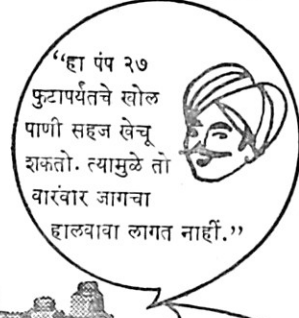 “हा पंप २७
फुटापर्यंतचे खोल
पाणी सहज खेचू
शकतो. त्यामुळे तो
वारंवार जागचा
हालवावा लागत नाहीं.”